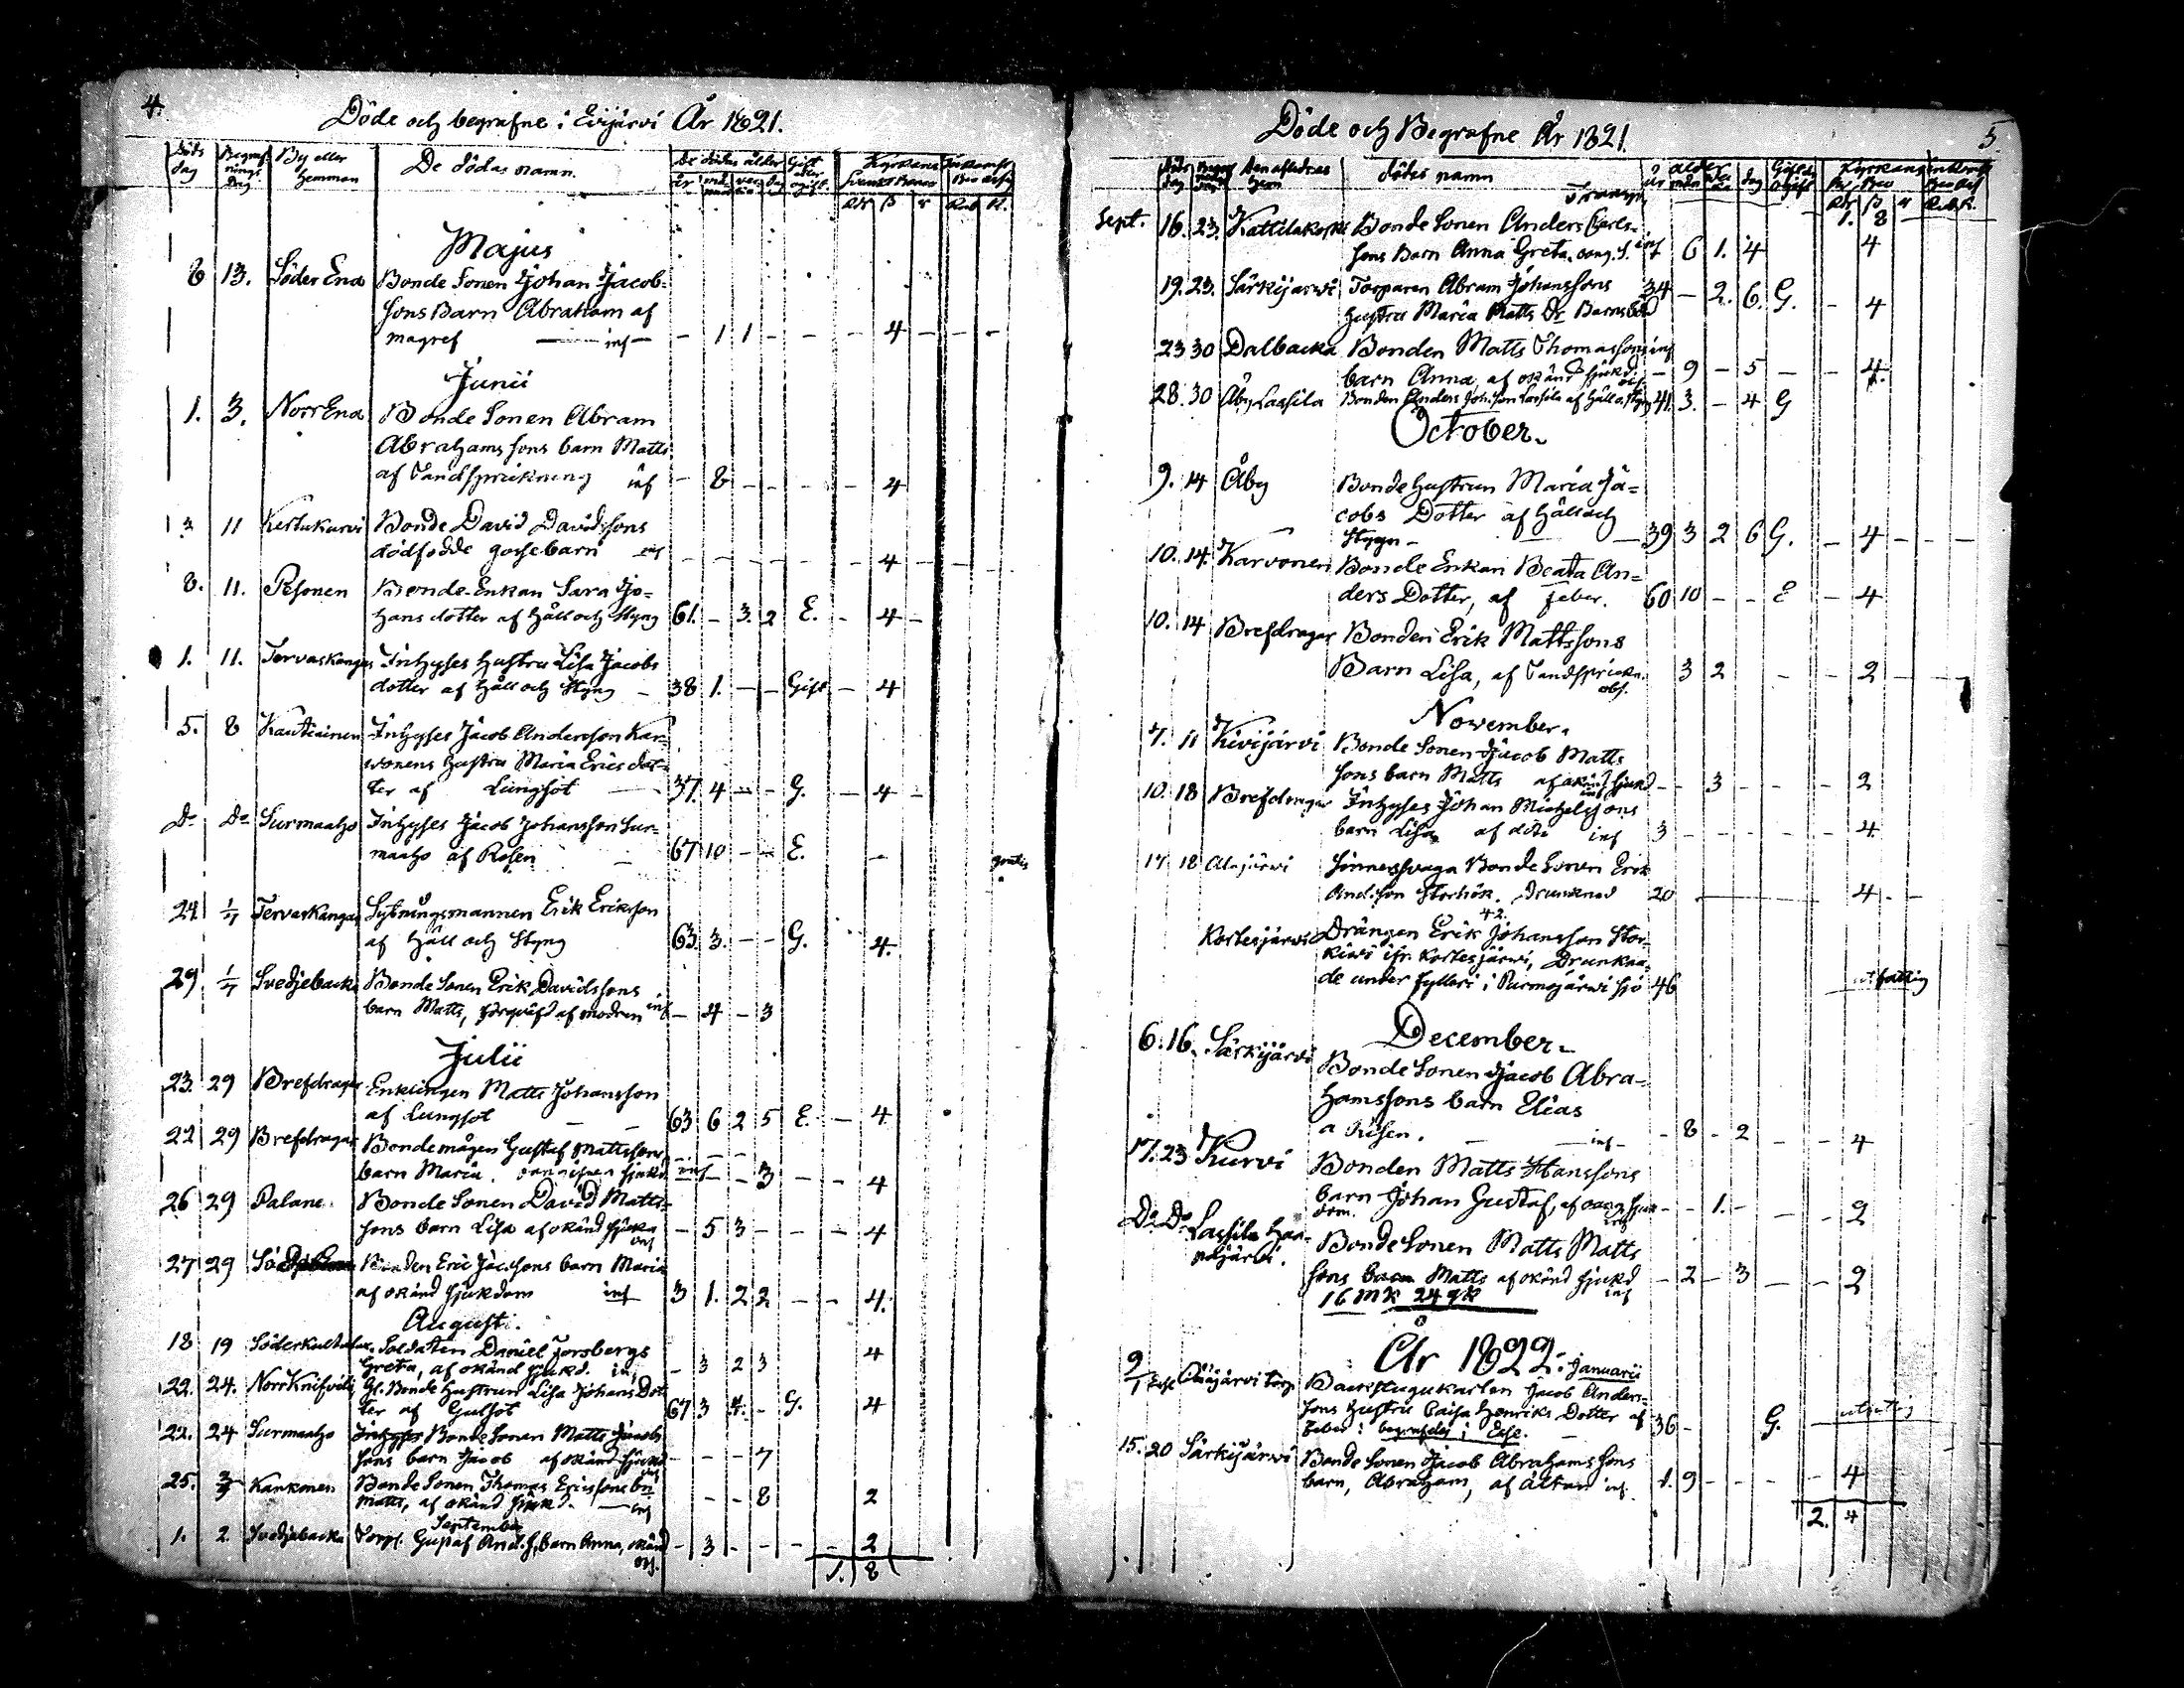 4.
Döde och begrafne i Evijärvi År 1821.
Döds dag Begraf-nings dag By eller Hemman De dödas namn. De dödas ålder Gift eller ogift. Kyrkans
år md. dag
Majus
6 13. Söder Ena Bonde Sonen Johan Jacob-
sons Barn Abraham af
magref inf - 1 1 - - - 4 - - -
Junii
1. 3. Norr Ena Bonde Sonen Abram
Abrahamssons barn Matts
af Tandsprickning inf - 8 - - - - 4
3 11 Kertukurvi Bonde David Davidssons
dödfödde gossebarn inf - - - - - - 4 -
8. 11. Pesonen Bonde-Enkan Sara Jo-
hans dotter af Håll och Styng 61. - 3. 2 E. - 4 -
1. 11. Tervaskangas Inhyses Hustru Lisa Jacobs
dotter af Håll och Styng - 38 1. - - Gift - 4
5. 8 Kautiainen Inhyses Jacob Andersson Kar-
vonens Hustru Maria Erics dot-
ter af Lungsot 37. 4 - - G. - 4 -
Do Do Surmaaho Inhyses Jacob Johansson Sur-
maaho af Rosen - 67 10 - - E. - gratis
24 1/7 Tervaskangas Sytningsmannen Erik Eriksson
af Håll och Styng 63. 3. - - G. 4.
29. 1/7 Svedjebacka Bonde Sonen Erik Davidssons
barn Matts, förqväfd af modren inf - 4 - 3
Julii
23. 29 Brefdragar Enklingen Matts Johansson
af Lungsot - - 63 6 2 5 E. - 4
22 29 Brefdragar Bondemågen Gustaf Mattssons
barn Maria. sjukd inf - - 3 - - 4
26 29 Palane Bonde Sonen David Matts-
sons barn Lisa af okänd sjukd - 5 3 - - - 4
inf
27 29 Bonden Eric Jac.sons barn Maria
af okänd sjukdom inf 3 1. 2 2 - - 4.
Augusti.
18 19 Soldaten Daniel Forsbergs
Greta, af okänd sjukd. inf - 3 2 3 4
22. 24. Norr Knifvilä Gl. Bonde Hustrun Lisa Johans Dot-
ter af Gulsot 67 3 4. - G. 4
22. 24 Surmaaho Bonde Sonen Matts Jacobs
sons barn Jacob af okänd sjukd - - - 7
25. Kankonen Bonde Sonen Thomas Ericssons bn
Matts, af okänd sjukd. inf - - 8 2
September
1. 2. Svedjebacka Torp. Gustaf And.s. barn Anna, okänd - 3 - - - - 2
1. 8
Döde och Begrafne År 1821. 5
Döds dag dödes namn ålder Kyrkans
Transp. 1. 8
Sept. 16. 23. Kattilakoski Bonde Sonen Anders Carls-
sons Barn Anna Greta. inf 6 1. 4 4
19. 23. Särkijärvi Torparen Abram Johanssons 34 - 2. 6. G. - 4
Hustru Maria Matts Dr. Barnsbörd
23 30 Dalbacka Bonden Matts Thomassons inf
barn Anna, af okänd sjukd. - 9 - 5 - - 4.
28. 30 Åby Lassila Bonden Anders Joh.son Lassila af Håll o. styng 41. 3. - 4 G
October.
9. 14 Åby Bonde hustrun Maria Ja-
cobs Dotter af Håll och
Styng - 39 3 2 6 G. - 4 - - -
10. 14. Karvonen Bonde Enkan Beata An-
ders Dotter, af feber. 60 10 - - E - 4
10. 14 Brefdragar Bonden Erik Mattssons
Barn Lisa, af Tandsprickn. 3 2 - - 2 -
November.
7. 11 Kivijärvi Bonde Sonen Jacob Matts
sons barn Matts af okänd sjukd - - 3 - - - 2
inf
10. 18 Brefdragar Inhyses Johan Michelssons
barn Lisa af dito inf 3 - - - - - 4.
17 18 Alajärvi Sinnessvaga Bonde Sonen Erik
And.son Storhök. Drunknad 20 4 - -
42.
Kortesjärvi Drängen Erik Johansson Stor-
kivi ifr. Kortesjärvi, Drunkna-
de under fylleri i Purmojärvi sjö 46 utfattig
December.
6. 16. Särkijärvi Bonde Sonen Jacob Abra-
hamssons barn Elias
a Risen. inf - 8 - 2 - - 4
17. 23 Kurvi Bonden Matts Hanssons
barn Johan Gustaf, af okän sjuk- - - 1. - - - 2
dom. inf
Do Do Lassila Han-
nijärvi. Bonde Sonen Matts Matts
sons barn Matts af okänd sjukd - 2 - 3 - - 2
16 mk 24 qk inf
År 1822. Januarii
9/1 Backstugukarlen Jacob Anders-
sons Hustru Caisa Henriks Dotter af 36 - G.
Feber: begrafdes i Esse.
15. 20 Särkijärvi Bonde Sonen Jacob Abrahamssons
barn, Abraham, af ältan inf. 1. 9 - - - - 4
2. 4